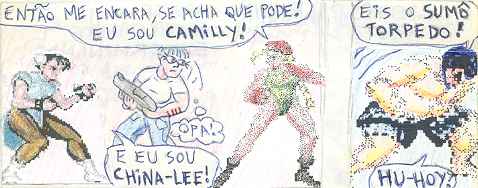 ENTÃO ME ENCARA, SE ACHA QUE PODE!
EU SOU CAMILLY!
OPA!
E EU SOU
CHINA-LEE!
EIS O SUMÔ
TORPEDO!
HU-HOY!